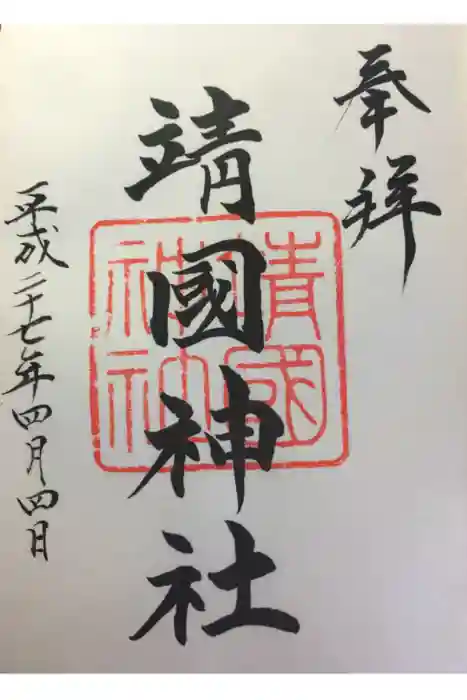 奉拝
靖國神社
靖國神社
平成二十七年四月四日